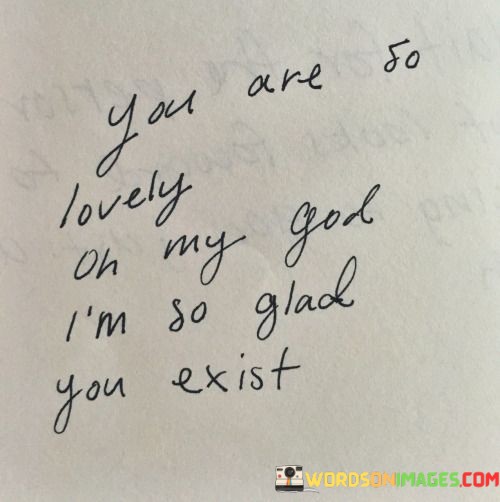 you are so
lovely
oh my god
I'm so glad
you exist
WORDSONIMAGES.COM